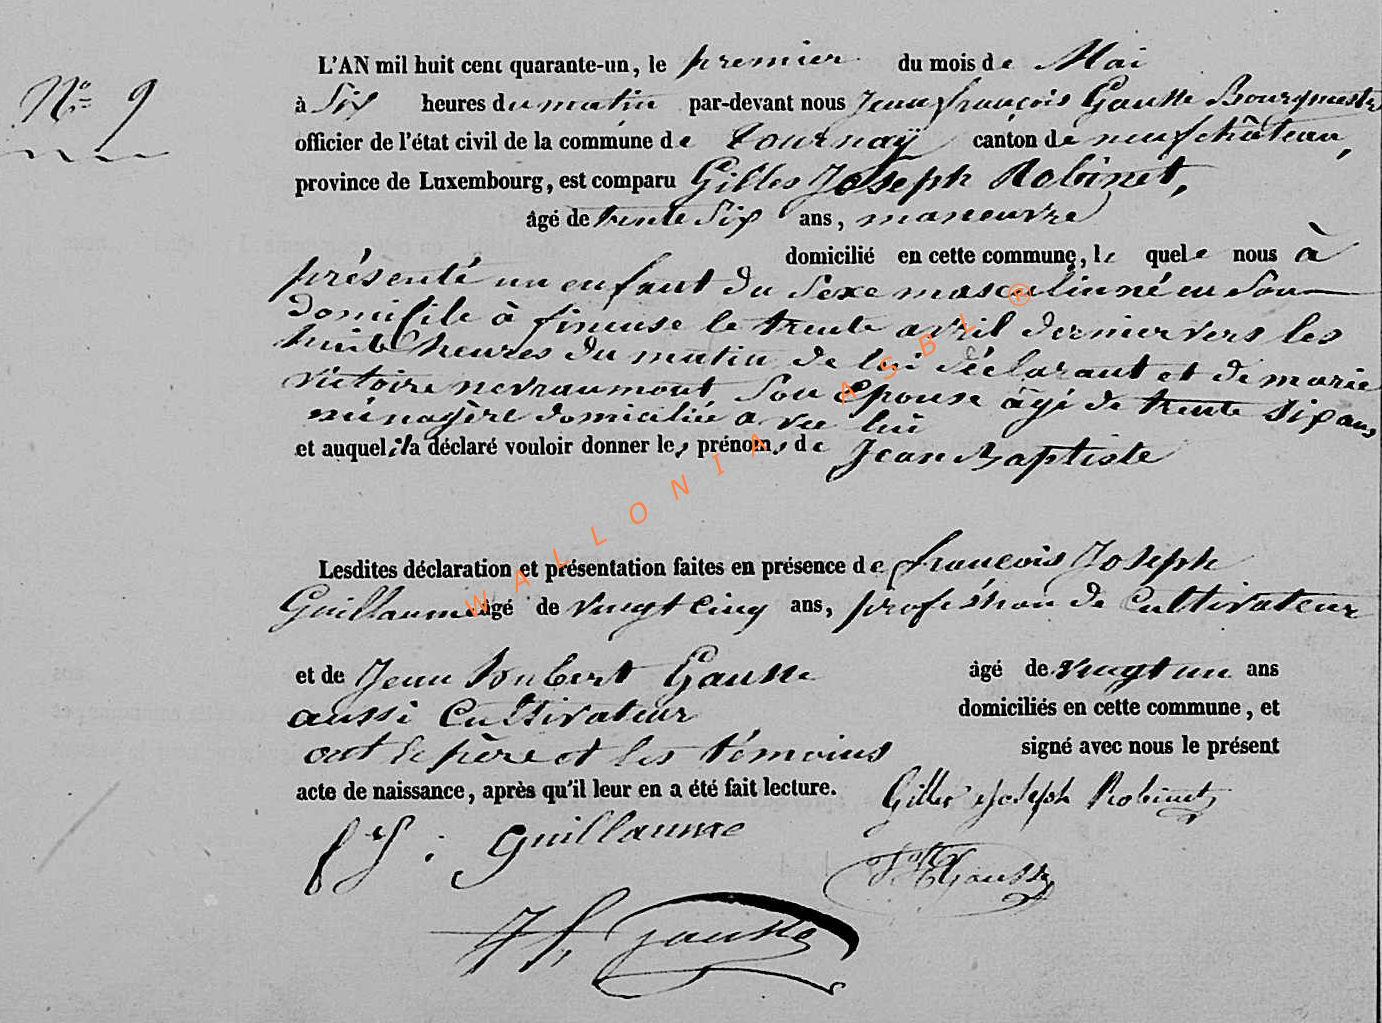 L'AN mil huit cent quarante-un, le premier du mois de Mai
N° 9
à Six heures du matin par-devant nous Jean françois Gausse Bourgmestre
officier de l'état civil de la commune de tournaÿ canton de neufchâteau,
province de Luxembourg, est comparu Gilles Joseph Robinet,
âgé de trente Six ans, manoeuvre
domicilié en cette commune, le quel e nous à
présenté un enfant du Sexe masculin né en Son
domicile à fineuse le trente avril dernier vers les
huit heures du matin de lui déclarant et de marie
victoire nevraumont Son épouse âgé de trente six ans
ménagère domiciliée avec lui
et auquel il a déclaré vouloir donner les prénoms de Jean Baptiste
Lesdites déclaration et présentation faites en présence de francois Joseph
Guillaume âgé de vingt Cinq ans, proféshion de Cultivateur
et de Jean Gausse âgé de vingt un ans
aussi Cultivateur domiciliés en cette commune, et
ont le père et les témoins signé avec nous le présent
acte de naissance, après qu'il leur en a été fait lecture.
Gilles Joseph Robinet
f J : Guillaume
Gausse
J f. Gausse
WALLONIA ASBL ®